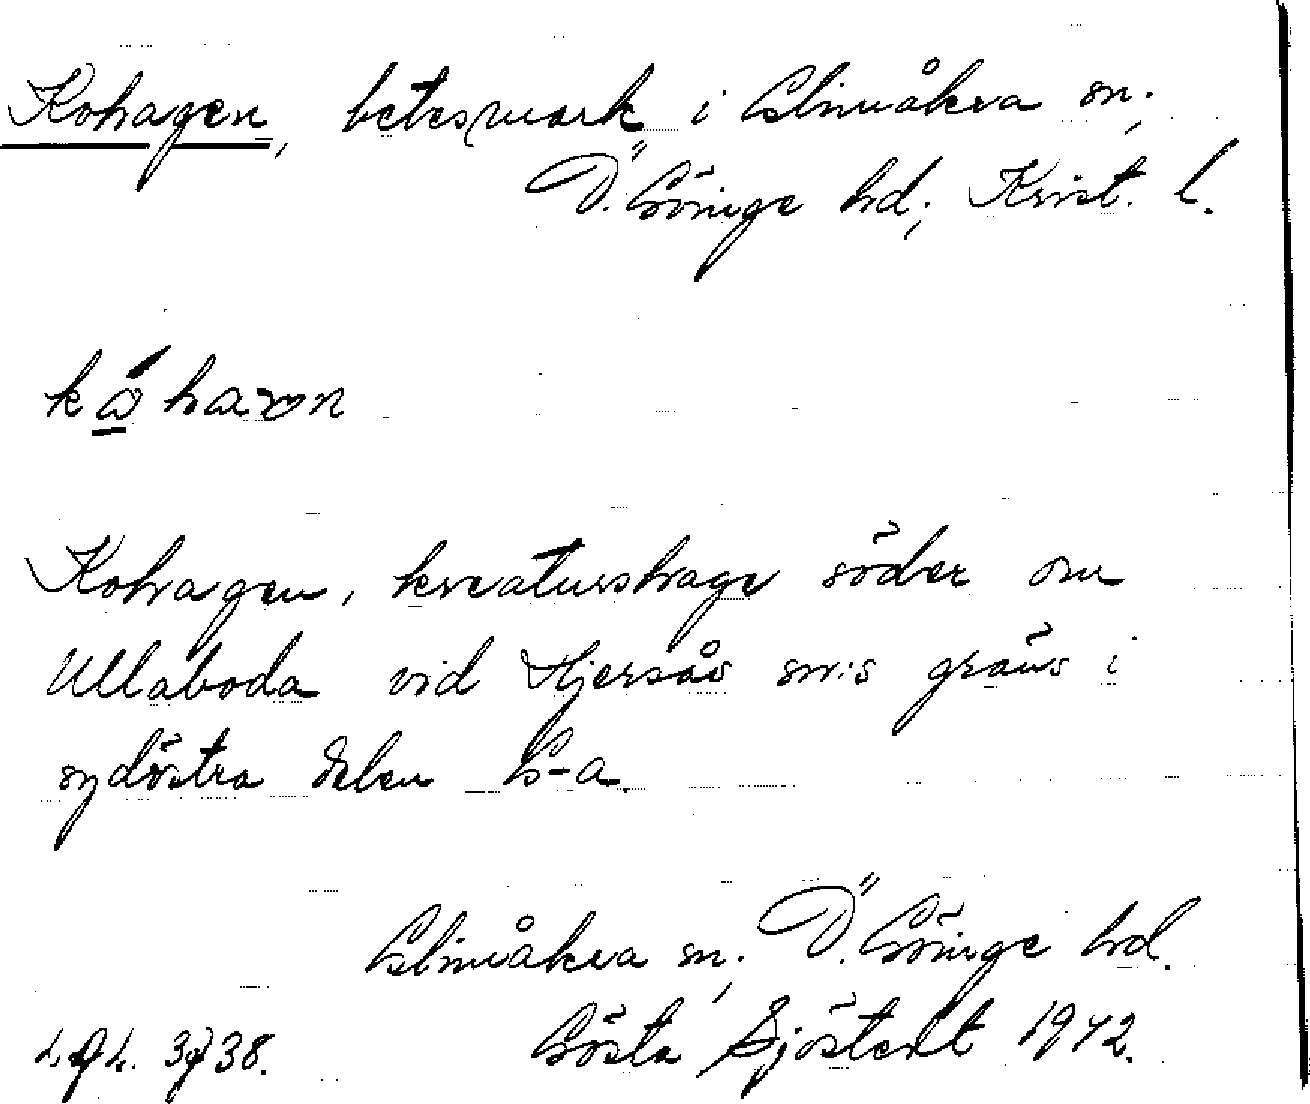 Kohagen, betesmark i Glimåkra sn;
Ö. Göinge hd; Krist. l.
Kohagen, kreaturshage söder om
Ullaboda vid Hjersås sn:s gräns i
sydöstra delen G-a.
Glimåkra sn; Ö. Göinge hd.
Gösta Sjöstedt 1942.